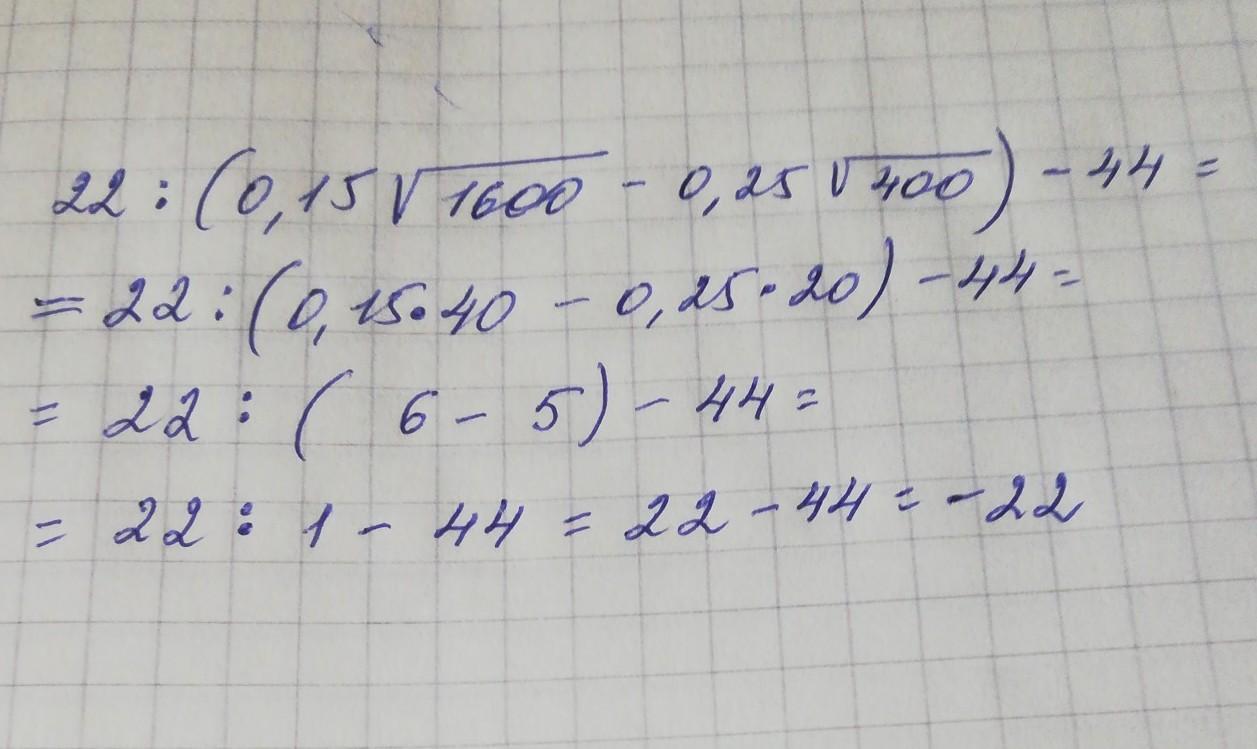 22 : (0,15√1600 - 0,25√400) - 44 =
= 22 : (0,15·40 - 0,25·20) - 44 =
= 22 : ( 6 - 5) - 44 =
= 22 : 1 - 44 = 22 - 44 = -22